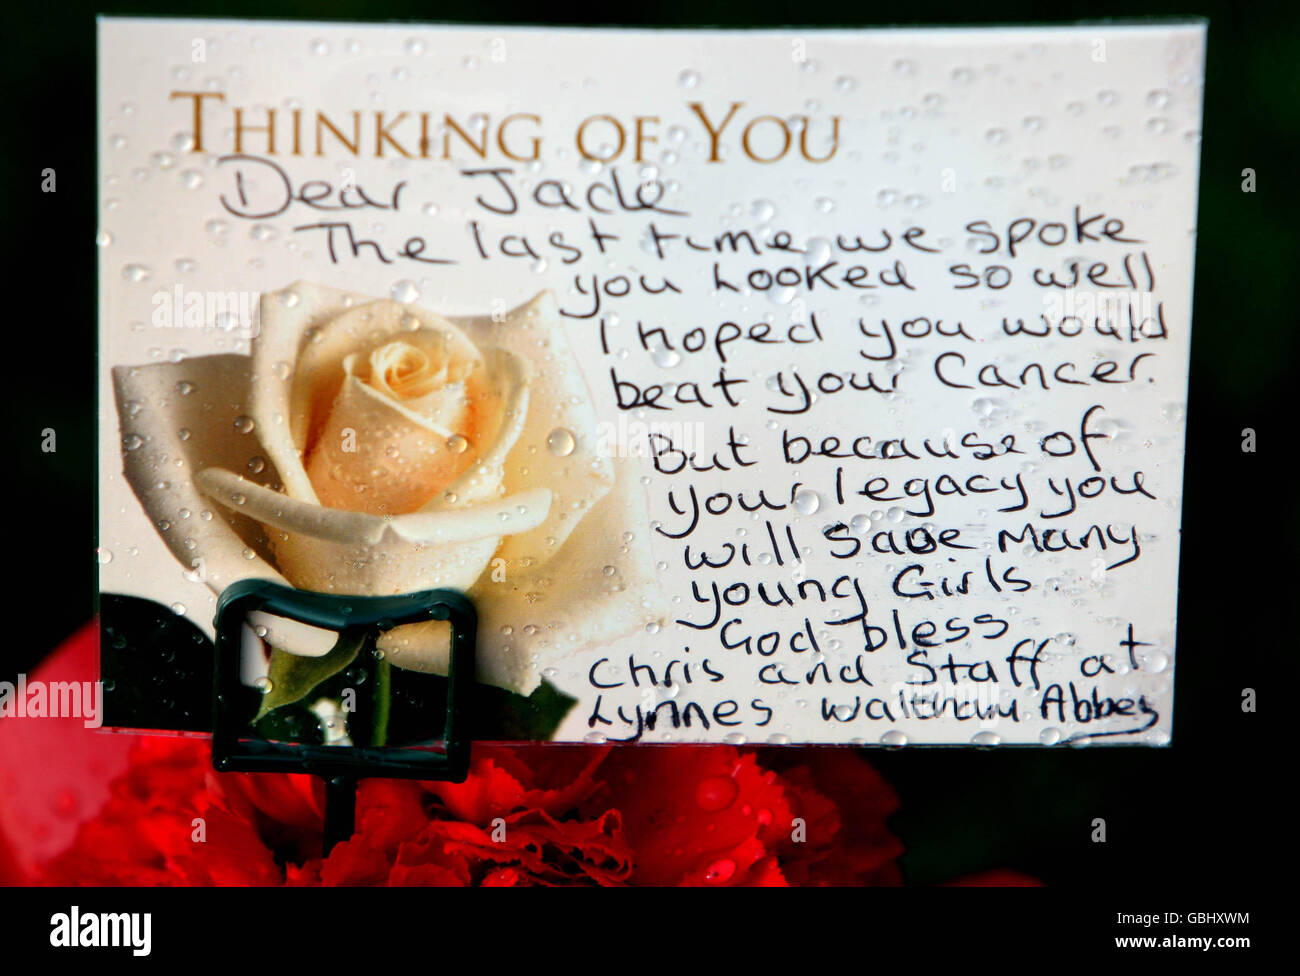 THINKING OF YOU
Dear Jade
The last time we spoke
you looked so well
I hoped you would
beat your Cancer.
But because of
your legacy you
will Save Many
young Girls.
God bless
Chris and Staff at
Lynnes Waltham Abbey
a
alamy
alamy
Image ID: GBHXWM
www.alamy.com